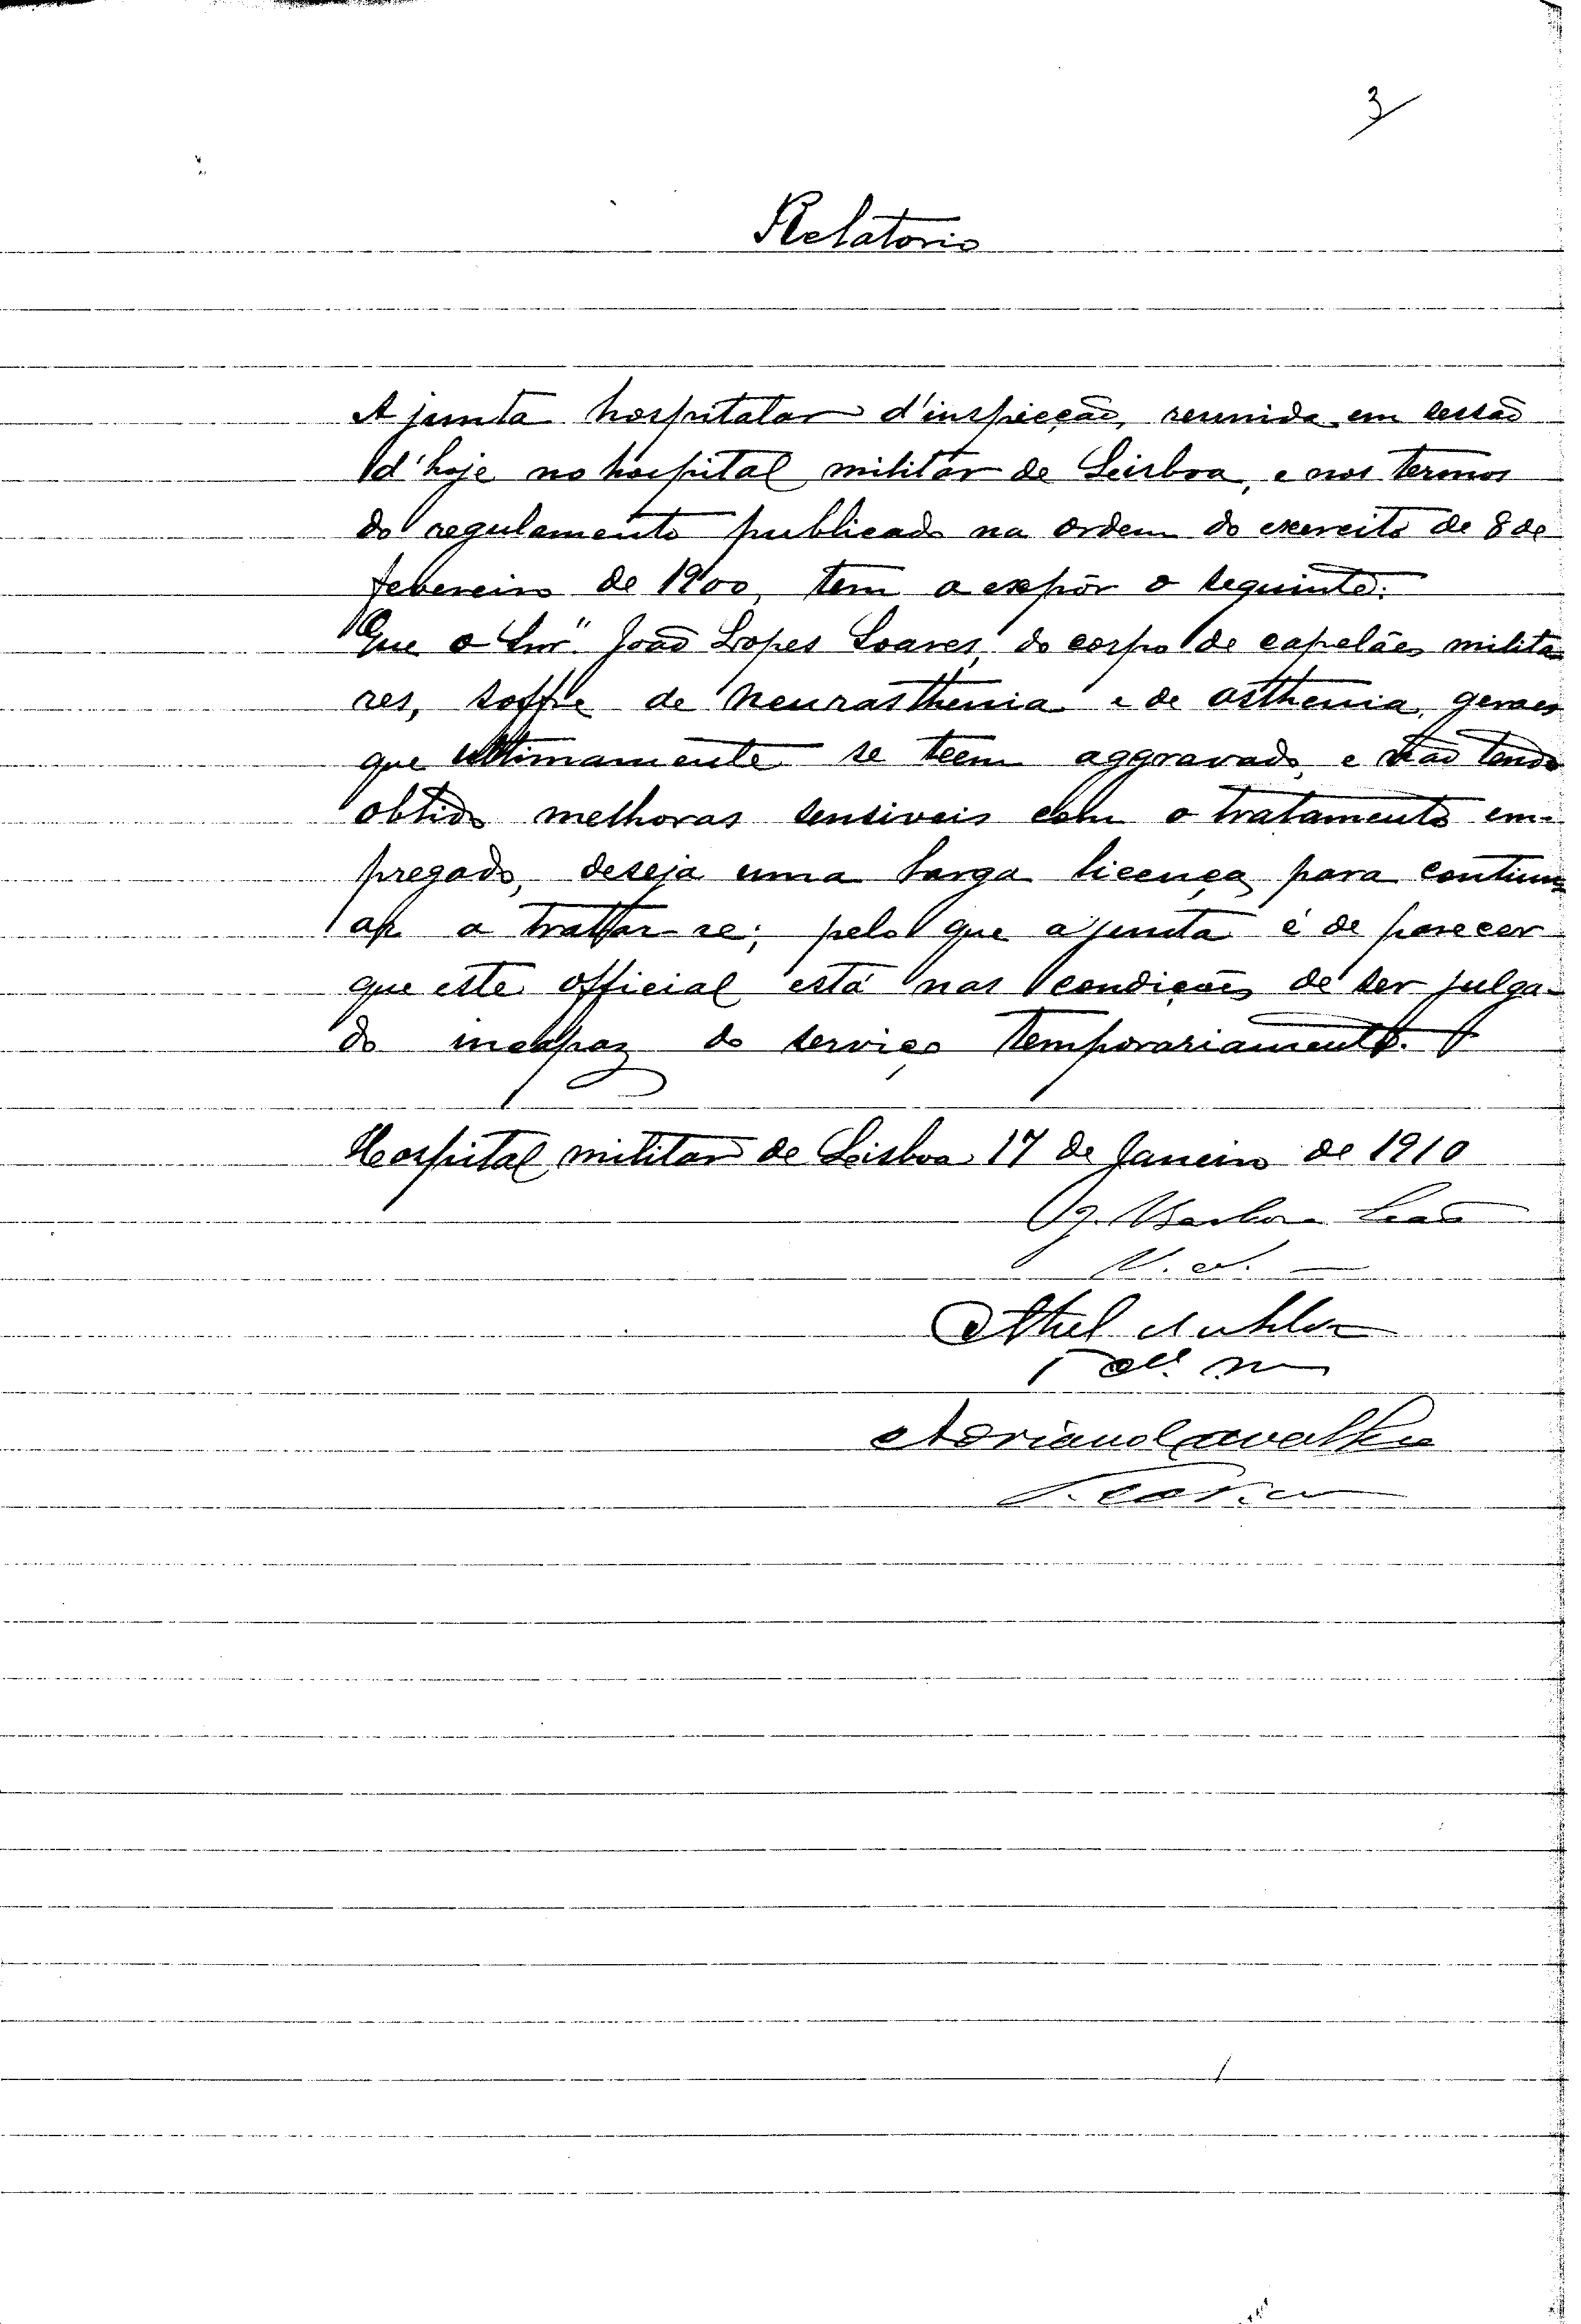 3
Relatorio
A junta hospitalar d'inspecção, reunida em sessão
d'hoje no hospital militar de Lisboa, e nos termos
do regulamento publicado na ordem do exercito de 8 de
fevereiro de 1900, tem a expôr o seguinte:
Que o Snr. João Lopes Soares, do corpo de capelães milita-
res, soffre de neurasthenia e de asthenia, geraes
que ultimamente se teem aggravado, e não tendo
obtido melhoras sensiveis com o tratamento em-
pregado, deseja uma larga licença para continu-
ar a trattar-se; pelo que a junta é de parecer
que este official está nas condições de ser julga-
do incapaz do serviço temporariamente.
Hospital militar de Lisboa 17 de Janeiro de 1910
J. Barbosa Leão
Adriano Carvalho